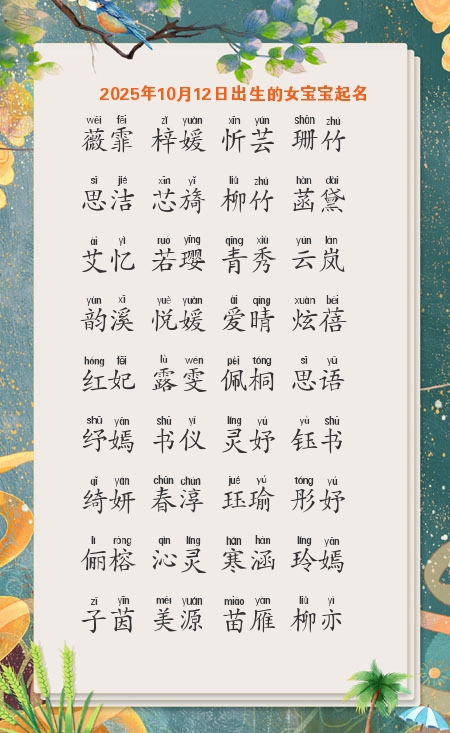 2025年10月12日出生的女宝宝起名
wēi fēi zǐ yuàn xīn yún shān zhú
薇霏 梓媛 忻芸 珊竹
sī jié xīn yǐ liǔ zhú hàn dài
思洁 芯旖 柳竹 菡黛
ài yì ruò yīng qīng xiù yún lán
艾忆 若璎 青秀 云岚
yùn xī yuè yuàn ài qíng xuàn bèi
韵溪 悦媛 爱晴 炫蓓
hóng fēi lù wén pèi tóng sī yǔ
红妃 露雯 佩桐 思语
shū yān shū yí líng yú yù shū
纾嫣 书仪 灵妤 钰书
qǐ yán chūn chún jué yú tóng yú
绮妍 春淳 珏瑜 彤妤
lì róng qìn líng hán hán líng yān
俪榕 沁灵 寒涵 玲嫣
zǐ yīn měi yuán miáo yàn liǔ yì
子茵 美源 苗雁 柳亦